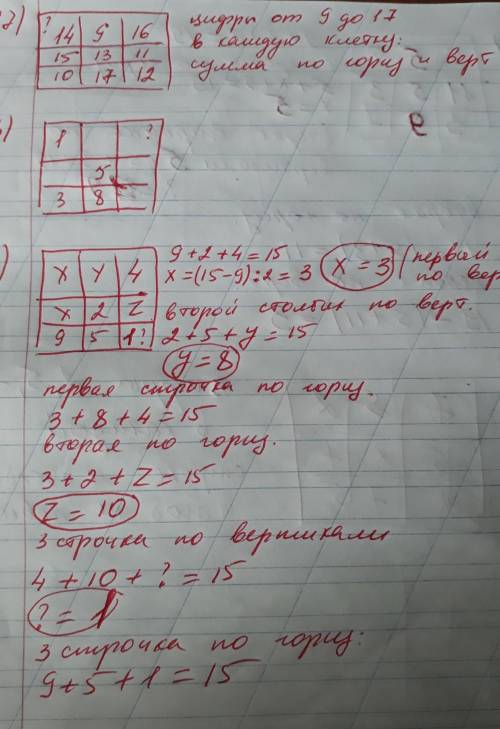 2)
? 14 9 16
15 13 11
10 17 12
цифры от 9 до 17
в каждую клетку:
сумма по гориз и верт
)
1 ?
5
3 8
е
)
X Y 4
X 2 Z
9 5 1?
9+2+4=15
X=(15-9):2=3 X=3 (первый
по вер
второй столбик по верт.
2+5+y=15
y=8
первая строчка по гориз.
3+8+4=15
вторая по гориз.
3+2+Z=15
Z=10
3 строчка по вертикали
4+10+?=15
?=1
3 строчка по гориз:
9+5+1=15